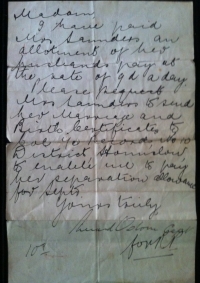 Madam
I have paid
Mrs Saunders, an
allotment of her
husbands pay at
the rate of 9d a day
Please request
Mrs Saunders to send
her Marriage and
Birth Certificates to
Record No 10
District Hounslow
to enable me to pay
her separation allowance
for Septr
Yours truly
10th
for